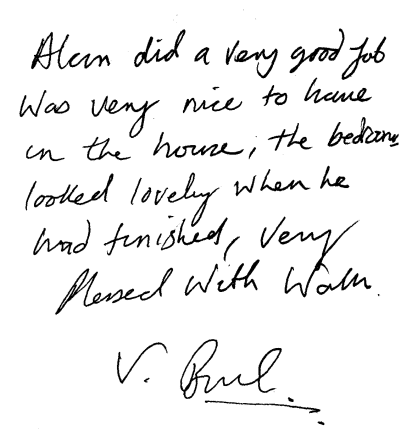 Alan did a very good job
was very nice to have
in the house, the bedrooms
looked lovely when he
had finished, very
pleased with work.
V.